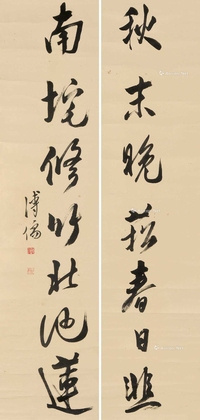 秋末晚菘春日韭
南垞脩竹北池蓮
溥儒